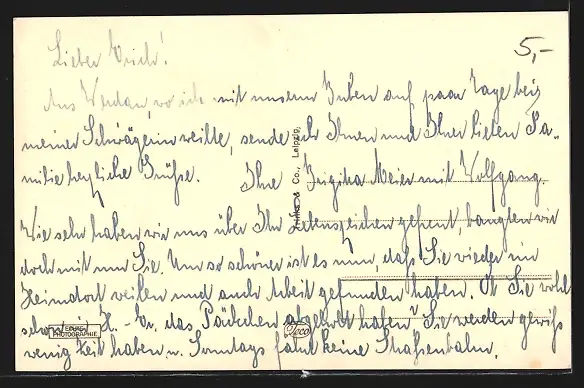 5,-
Lieber Erich!
Aus Werdau, wo ich mit unserm Buben auf paar Tage bei
meiner Schwägerin weilte, sende ich Ihnen und Ihrer lieben Fa-
milie herzliche Grüße. Ihre Brigitta Meier mit Wolfgang.
Wie sehr haben wir uns über Ihr Lebenszeichen gefreut, bangten wir
doch mit um Sie. Um so schöner ist es nun, daß Sie wieder im
Heimdorf weilen und auch Arbeit gefunden haben. Ob Sie wohl
schon in das Päckchen abgeholt haben? Sie werden gewiß
wenig Zeit haben u. Sonntags fährt keine Straßenbahn.
& Co., Leipzig
ECHTE PHOTOGRAPHIE